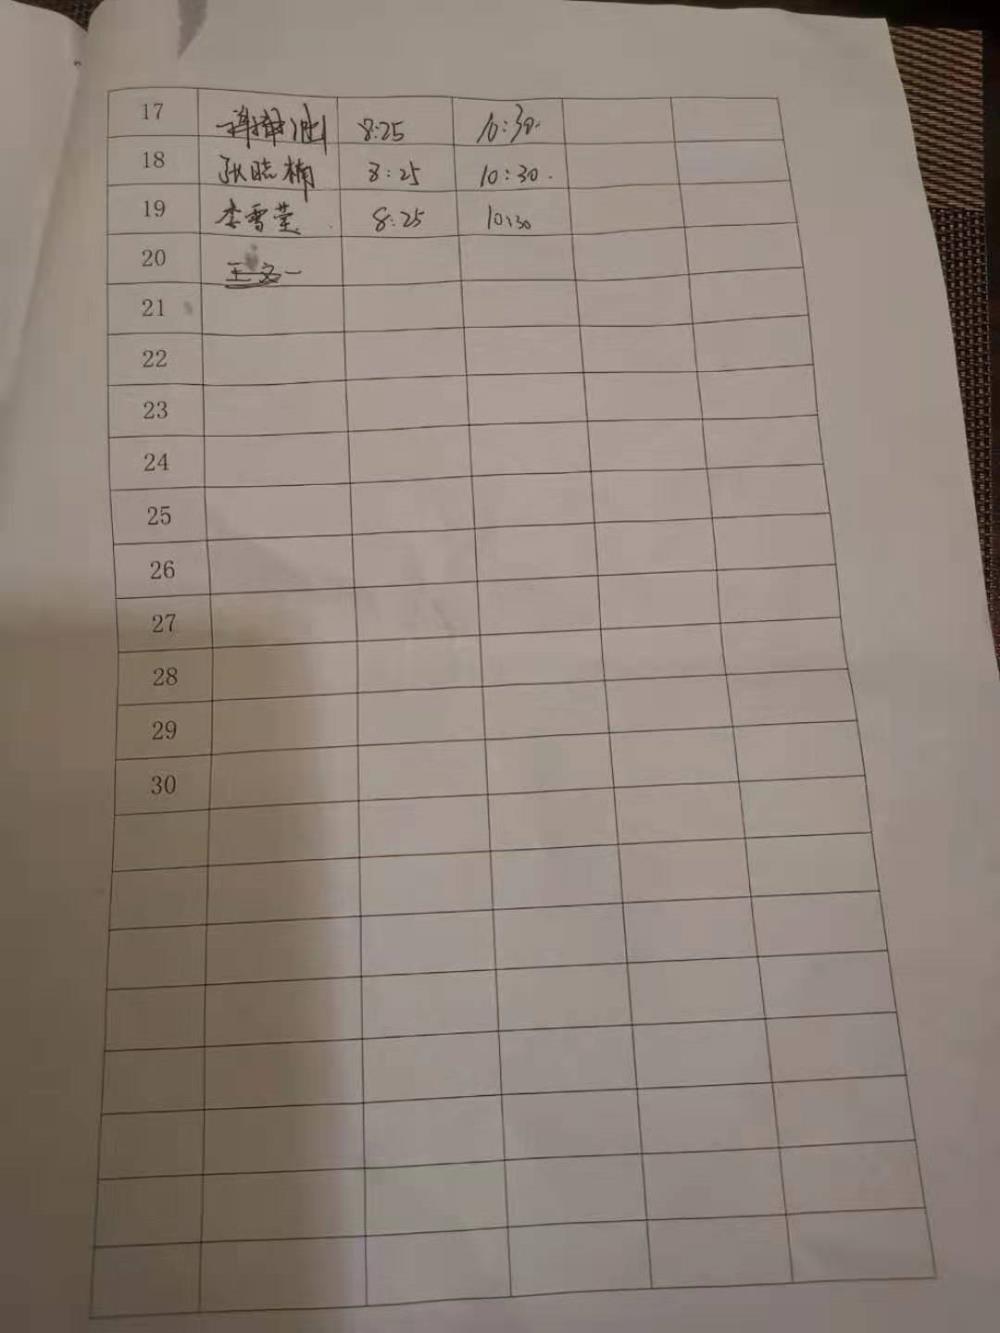 17 8:25 10:30.
18 张晓楠 8:25 10:30.
19 李雪莹 8:25 10:30
20 王文一
21
22
23
24
25
26
27
28
29
30